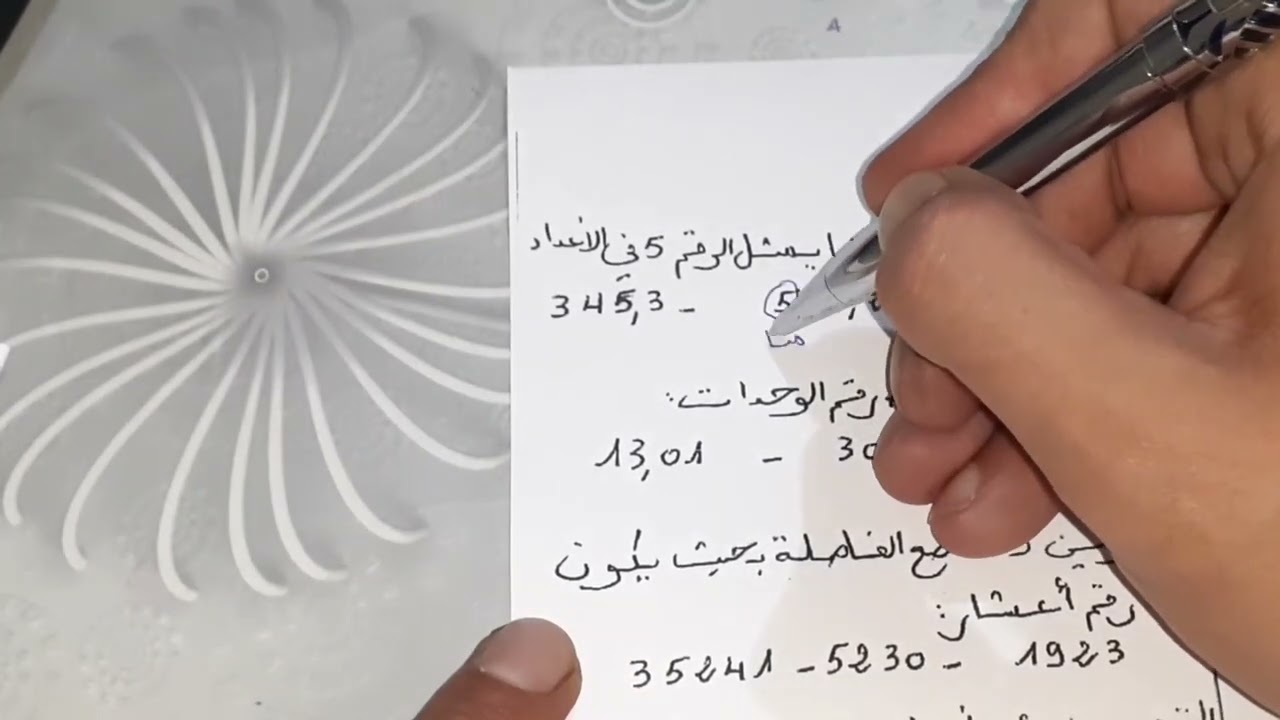 يمثل الرقم 5 في الأعداد
345,3 - 5
رقم الوحدات:
13,01 - 30
الفاصلة بحيث يكون
رقم أعشار:
35241 - 5230 - 1923